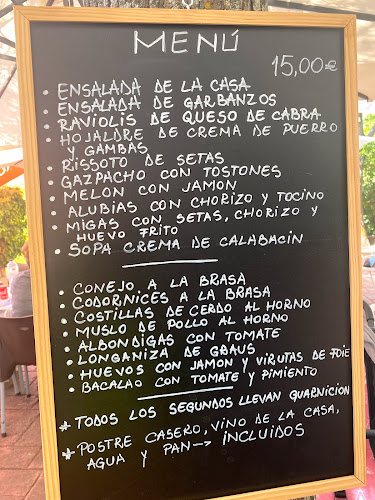 MENÚ
15,00€
• ENSALADA DE LA CASA
• ENSALADA DE GARBANZOS
• RAVIOLIS DE QUESO DE CABRA
• HOJALDRE DE CREMA DE PUERRO
Y GAMBAS
• RISSOTO DE SETAS
• GAZPACHO CON TOSTONES
• MELON CON JAMON
• ALUBIAS CON CHORIZO Y TOCINO
• MIGAS CON SETAS, CHORIZO Y
HUEVO FRITO
• SOPA CREMA DE CALABACIN
• CONEJO A LA BRASA
• CODORNICES A LA BRASA
• COSTILLAS DE CERDO AL HORNO
• MUSLO DE POLLO AL HORNO
• ALBONDIGAS CON TOMATE
• LONGANIZA DE GRAUS
• HUEVOS CON JAMON Y VIRUTAS DE FOIE
• BACALAO CON TOMATE Y PIMIENTO
* TODOS LOS SEGUNDOS LLEVAN GUARNICION
* POSTRE CASERO, VINO DE LA CASA,
AGUA Y PAN --> INCLUIDOS